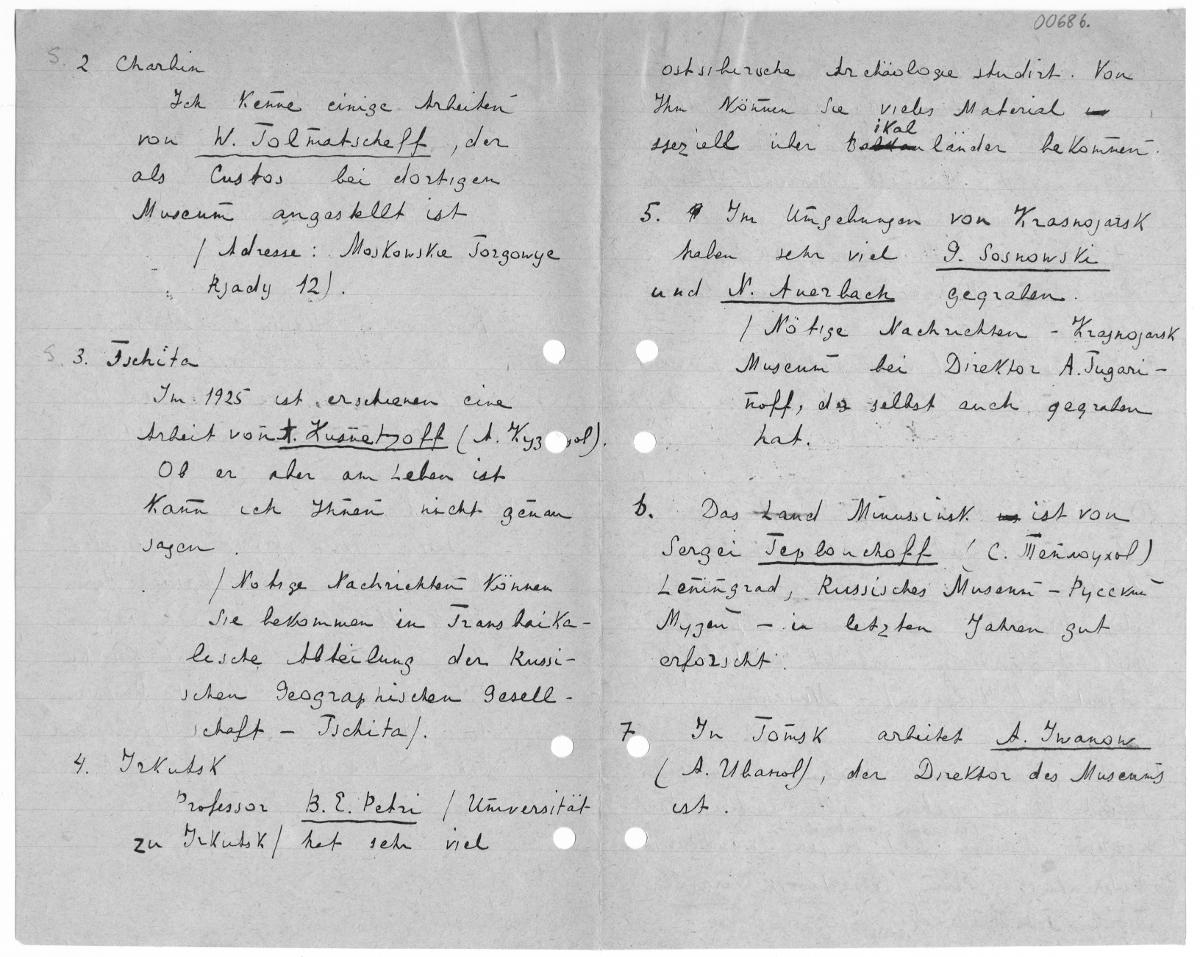 00686.
S. 2 Charbin
Ich Kenne einige Arbeiten
von W. Tolmatscheff, der
als Custos bei dortigen
Museum angestellt ist
/ Adresse: Moskowskie Torgowye
Rjady 12).
S. 3. Tschita
Im 1925 ist erschienen eine
Arbeit von A. Kusnetzoff (А. Куз ов).
Ob er aber am Leben ist
Kann ich Ihnen nicht genau
sagen.
/ Notige Nachrichten Können
Sie bekommen in Transbaika-
lische Abteilung der Russi-
schen Geographischen Gesell-
schaft – Tschita/.
4. Irkutsk
Professor B. E. Petri / Universität
zu Irkutsk/ hat sehr viel
ostsibirische Archäologie studirt. Von
Ihm Können Sie vieles Material
sseziell über Baikalländer bekommen.
5. Im Umgebungen von Krasnojarsk
haben sehr viel G. Sosnowski
und N. Auerbach gegraben.
/ Nötige Nachrichten – Krasnojarsk
Museum bei Direktor A. Tugari-
noff, der selbst auch gegraben
hat.
6. Das Land Minussinsk ist von
Sergei Teplouchoff (С. Теплоухов)
Leningrad, Russisches Museum – Русский
Музей – in letzten Jahren gut
erforscht.
7. In Tomsk arbeitet A. Iwanow
(А. Иванов), der Direktor des Museums
ist.